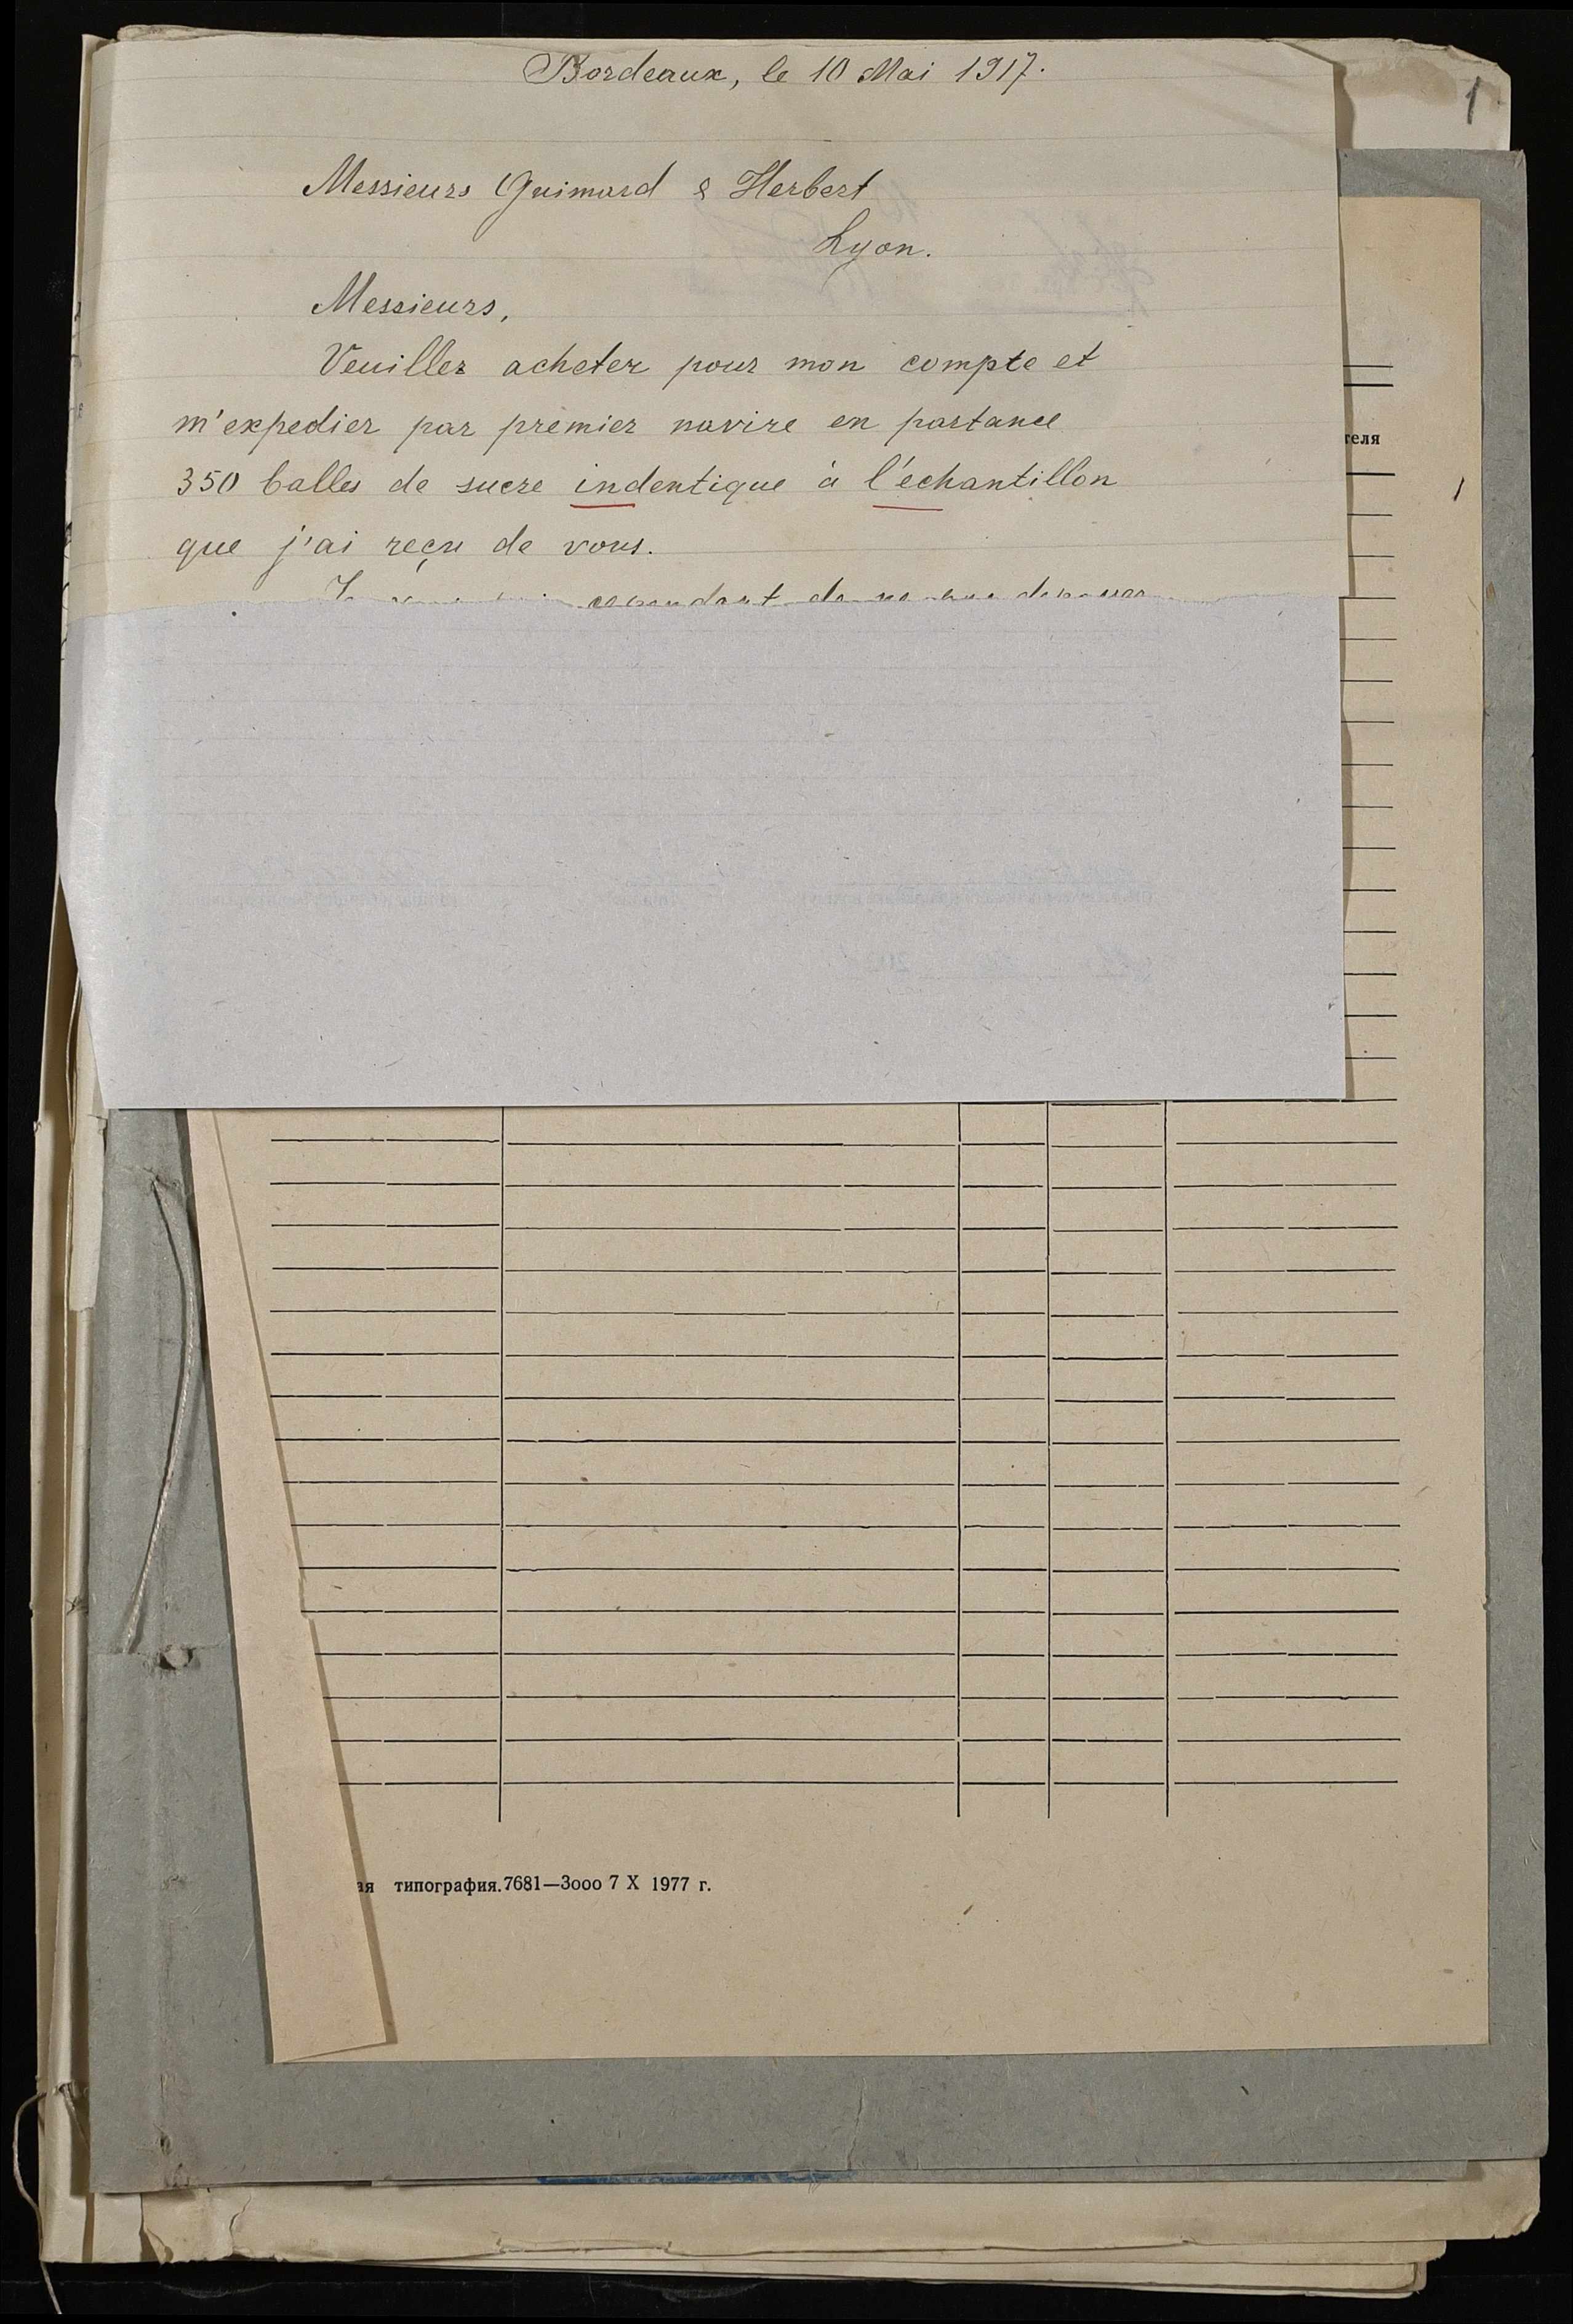 Bordeaux, le 10 Mai 1917.
1
Messieurs Guimard & Herbert
Lyon.
Messieurs,
Veuillez acheter pour mon compte et
m'expedier par premier navire en partance
теля
350 balles de sucre indentique à l'échantillon
que j'ai reçu de vous.
cependant de ne
ая типография.7681—3000 7 X 1977 г.